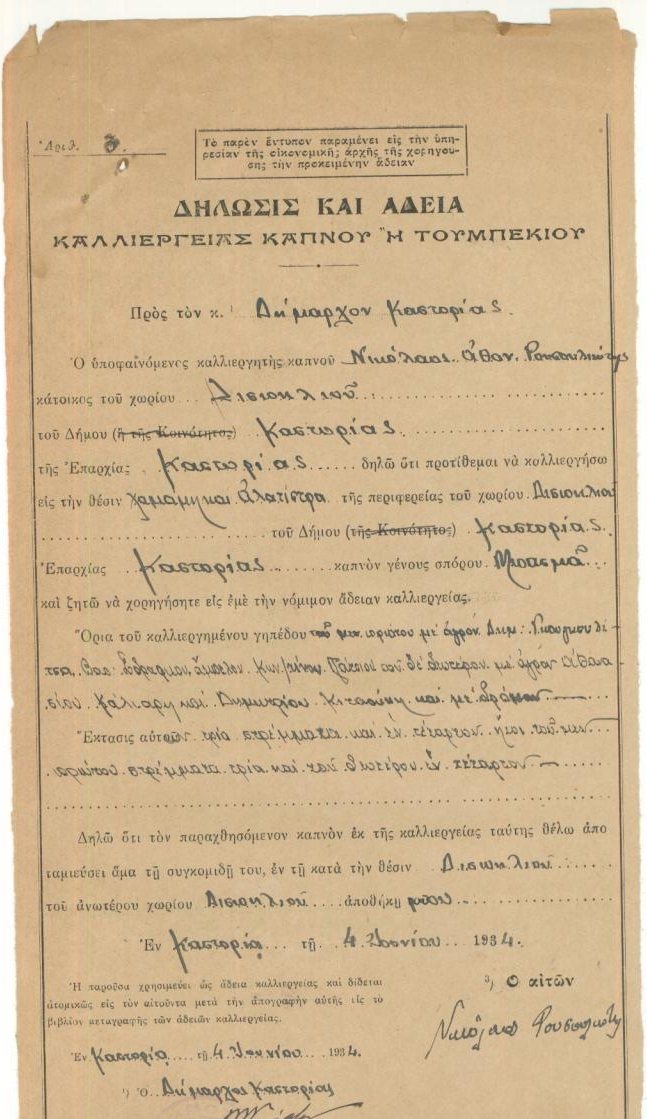 Ἀριθ. 3.
Τὸ παρὸν ἔντυπον παραμένει εἰς τὴν ὑπη-
ρεσίαν τῆς οἰκονομικῆς ἀρχῆς τῆς χορηγού-
σης τὴν προκειμένην ἄδειαν
ΔΗΛΩΣΙΣ ΚΑΙ ΑΔΕΙΑ
ΚΑΛΛΙΕΡΓΕΙΑΣ ΚΑΠΝΟΥ Ἢ ΤΟΥΜΠΕΚΙΟΥ
Πρὸς τὸν κ. Δήμαρχον Καστορίας.
Ὁ ὑποφαινόμενος καλλιεργητὴς καπνοῦ Νικόλαος Ἀθαν.
κάτοικος τοῦ χωρίου Δισπηλιοῦ
τοῦ Δήμου (ἢ τῆς Κοινότητος) Καστωρίας
τῆς Ἐπαρχίας Καστορίας δηλῶ ὅτι προτίθεμαι νὰ καλλιεργήσω
εἰς τὴν θέσιν καὶ Ἀλατίστρα τῆς περιφερείας τοῦ χωρίου
τοῦ Δήμου (τῆς Κοινότητος) Καστορίας
Ἐπαρχίας Καστορίας καπνὸν γένους σπόρου Μπασμᾶ
καὶ ζητῶ νὰ χορηγήσητε εἰς ἐμὲ τὴν νόμιμον ἄδειαν καλλιεργείας.
Ὅρια τοῦ καλλιεργημένου γηπέδου τοῦ μὲν πρώτου μὲ ἀγρὸν Δημ.
ἄμπελον τοῦ δὲ δευτέρου μὲ ἀγρὸν Ἀθανα-
σίου καὶ Δημητρίου καὶ μὲ δρόμον
Ἔκτασις αὐτῶν τρία στρέμματα καὶ ἓν τέταρτον ἤτοι τοῦ μὲν
πρώτου στρέμματα τρία καὶ τοῦ δευτέρου ἓν τέταρτον
Δηλῶ ὅτι τὸν παραχθησόμενον καπνὸν ἐκ τῆς καλλιεργείας ταύτης θέλω ἀπο
ταμιεύσει ἅμα τῇ συγκομιδῇ του, ἐν τῇ κατὰ τὴν θέσιν Δισπηλιοῦ
τοῦ ἀνωτέρου χωρίου Δισπηλιοῦ ἀποθήκῃ μου
Ἐν Καστορίᾳ τῇ 4 Ἰουνίου 1934.
Ἡ παροῦσα χρησιμεύει ὡς ἄδεια καλλιεργείας καὶ δίδεται
ἀτομικῶς εἰς τὸν αἰτοῦντα μετὰ τὴν ἀπογραφὴν αὐτῆς εἰς τὸ
βιβλίον μεταγραφῆς τῶν ἀδειῶν καλλιεργείας.
Ὁ αἰτῶν
Νικόλαος
Ἐν Καστορίᾳ τῇ 4 Ἰουνίου 1934.
Ὁ Δήμαρχος Καστορίας